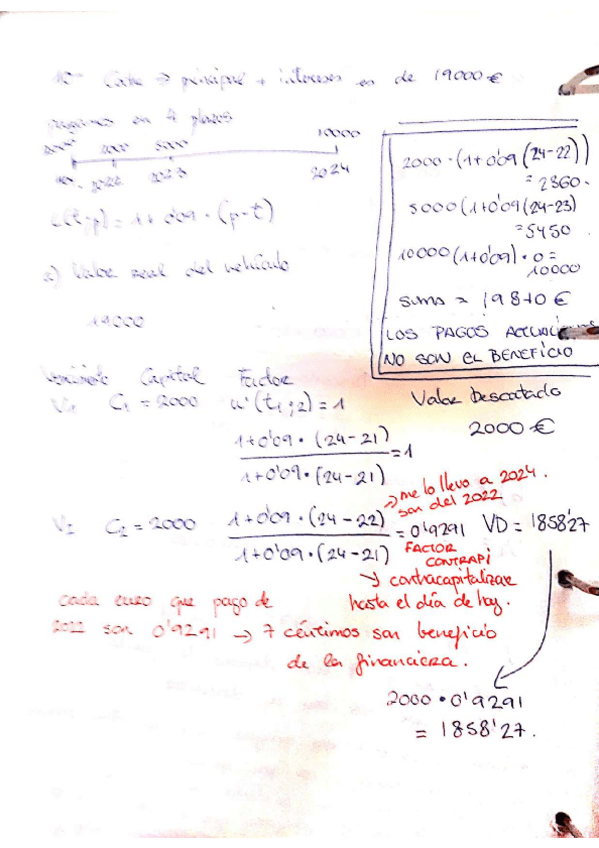 10- Coche → principal + intereses es de 19000€
pagamos en 4 plazos
2000 2000 5000 10000
2022 2023 2024
L(t,p) = 1 + 0'09 · (p-t)
a) Valor real del vehículo
19000
2000 · (1+0'09 (24-22))
= 2360.
5000 (1+0'09 (24-23)
= 5450
10000 (1+0'09) · 0 =
10000
suma = 19810 €
LOS PAGOS
NO SON EL BENEFICIO
Vencimiento Capital Factor
V1 C1 = 2000 u'(t1;2) = 1
Valor Descontado
2000 €
1+0'09 · (24-21)
= 1
1+0'09 · (24-21)
→ me lo llevo a 2024.
son del 2022
V2 C2 = 2000 1+0'09 · (24-22) = 0'9291 VD = 1858'27
1+0'09 · (24-21)
FACTOR
CONTRAPI
↘ contracapitalizar
hasta el día de hoy.
cada euro que pago de
2022 son 0'9291 → 7 céntimos son beneficio
de la financiera.
2000 · 0'9291
= 1858'27.